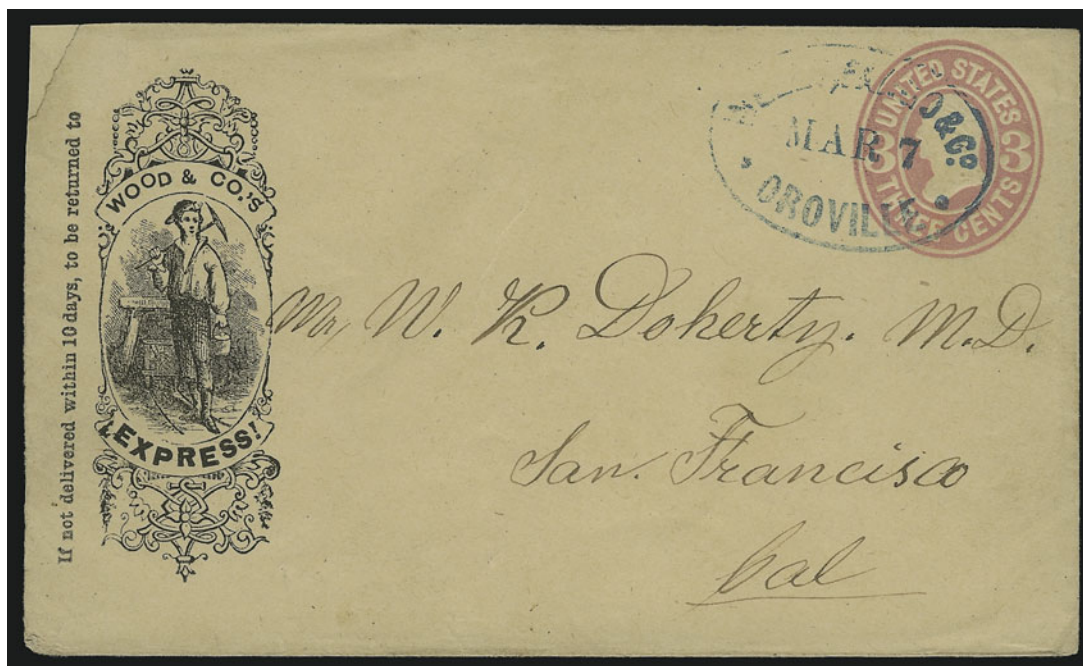 If not delivered within 10 days, to be returned to
WOOD & CO.'S
EXPRESS!
& Co.
MAR 7
OROVILLE
UNITED STATES
3 3
THREE CENTS
Mr. W. K. Doherty. M.D.
San. Francisco
Cal